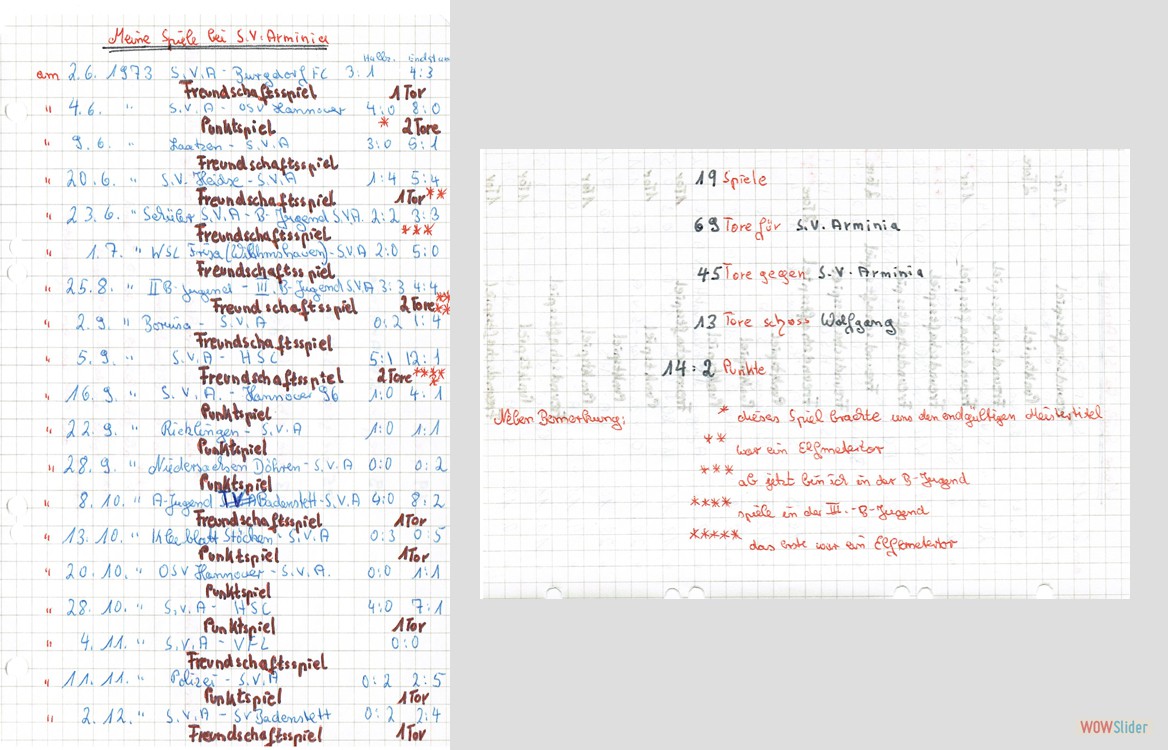 Meine Spiele bei S.V. Arminia
Halbz. Endstum
am 2.6. 1973 S.V.A - Burgdorf FC 3:1 4:3
Freundschaftsspiel 1 Tor
" 4.6. " S.V.A - OSV Hannover 4:0 8:0
Punktspiel * 2 Tore
" 9.6. " Laatzen - S.V.A 3:0 6:1
Freundschaftsspiel
" 20.6. " S.V. - S.V.A 1:4 5:4
Freundschaftsspiel 1 Tor **
" 23.6. " Schüler S.V.A - B-Jugend S.V.A. 2:2 3:3
Freundschaftsspiel ***
1.7. " WSL Frisa (Wilhelmshaven) - S.V.A 2:0 5:0
Freundschaftsspiel
" 25.8. " II B-Jugend - III. B-Jugend S.V.A 3:3 4:4
Freundschaftsspiel 2 Tore ****
" 2.9. " Borusia - S.V.A 0:2 1:4
Freundschaftsspiel
" 5.9. S.V.A - HSC 5:1 12:1
Freundschaftsspiel 2 Tore *****
" 16.9. " S.V.A. - Hannover 96 1:0 4:1
Punktspiel
" 22.9. " Ricklingen - S.V.A 1:0 1:1
Punktspiel
" 28.9. " Niedersachsen Döhren - S.V.A 0:0 0:2
Punktspiel
" 8.10. " A-Jugend Badenstett - S.V.A 4:0 8:2
Freundschaftsspiel 1 Tor
" 13.10. " Kleeblatt Stöcken - S.V.A 0:3 0:5
Punktspiel 1 Tor
" 20.10. " OSV Hannover - S.V.A. 0:0 1:1
Punktspiel
" 28.10. " S.V.A - HSC 4:0 7:1
Punktspiel 1 Tor
" 4.11. " S.V.A - VFL 0:0
Freundschaftsspiel
" 11.11. " Polizei - S.V.A 0:2 2:5
Punktspiel 1 Tor
" 2.12. " S.V.A - SV Badenstett 0:2 2:4
Freundschaftsspiel 1 Tor
19 Spiele
69 Tore für S.V. Arminia
45 Tore gegen S.V. Arminia
13 Tore schoss Wolfgang
14:2 Punkte
Neben Bemerkung: * dieses Spiel brachte uns den endgültigen Meistertitel
** war ein Elfmetertor
*** ab jetzt bin ich in der B-Jugend
**** spiele in der III.-B-Jugend
***** das erste war ein Elfmetertor
WOWSlider